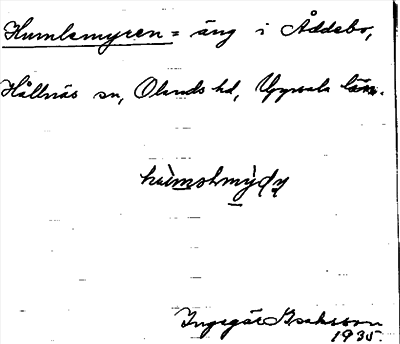 Humlemyren = äng i Åddebo,
Hållnäs sn, Olands hd, Uppsala län.
Ingegär Isaksson
1935.